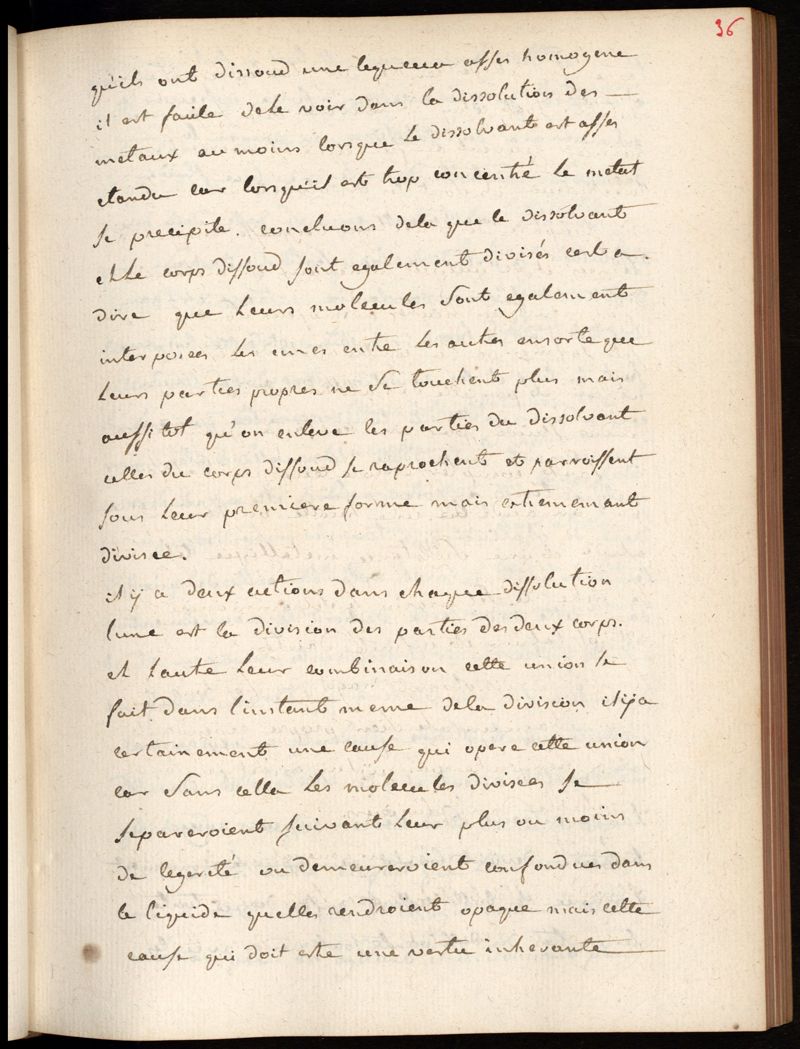 36
qu'ils ont dissoud une liqueur asses homogene
il est facile dele voir dans la dissolution des
metaux au moins lorsque le dissolvant est asses
etandu car lorsqu'il est trop concentré le metal
se precipite. concluons dela que le dissolvant
et le corps dissoud sont egalement divisés cest a
dire que leurs molecules sont egalement
interposees les unes entre les autres ensorte que
leurs parties propres ne se touchent plus mais
aussitot qu'on enleve les parties du dissolvant
celles du corps dissoud se raprochent et parroissent
sous leur premiere forme mais extremement
divisee.
il y a deux actions dans chaque dissolution
lune est la division des parties des deux corps.
et lautre leur combinaison cette union se
fait dans l'instant meme dela division il y a
certainement une cause qui opere cette union
car sans cella les molecules divisees se
separeroient suivant leur plus ou moins
de legereté ou demeureroient confondues dans
le liquide quelles rendroient opaque mais cette
cause qui doit etre une vertu inherante